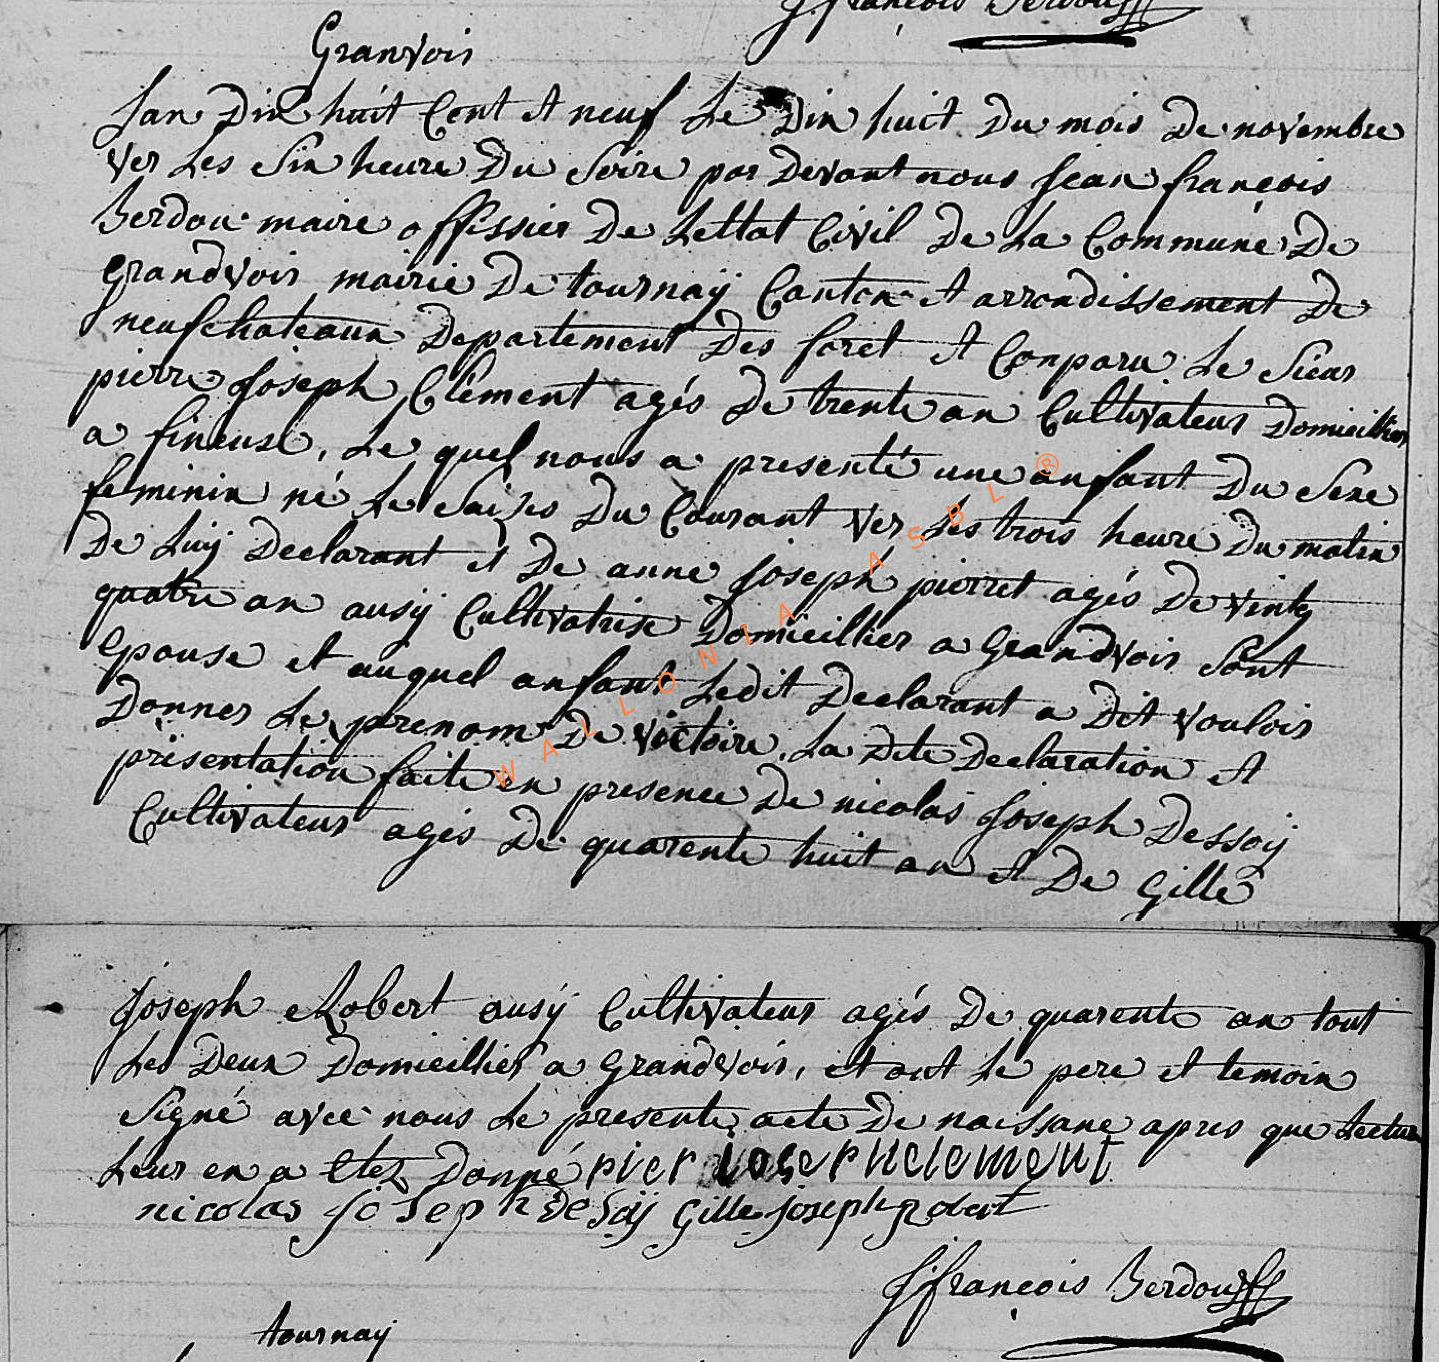 J francois Berdou
Granvois
Lan Dix huit Cent et neuf Le Dix huit Du mois De novembre
ver Les Six heure Du Soire par Devant nous Jean françois
Berdou maire offissier De Lettat Civil De La Commune De
grandvoir mairie De tournaÿ Canton et arrondissement De
neufchateaux Departement Des foret et Conparu Le Sieur
pierre Joseph Clément agés De trente an Cultivateur Domicillier
a fineuse, Le quel nous a presenté une anfant Du Sexe
feminin né Le Saizes Du Courant ver Les trois heure Du matin
De Luy Declarant et De anne Joseph pierret agés De vintg
quatre an ausÿ Cultivatrise Domicillier a Grandvoir Sont
Epouse et auquel anfant Ledit Declarant a Dit vouloir
Donner Le prenom De victoire, La Dite Declaration et
présentation faite en presence De nicolas Joseph Dessoÿ
Cultivateur agés De quarente huit an et De Gille
Joseph Robert ausÿ Cultivateur agés De quarente an tout
Les Deux Domicillier a Grandvoir, et ont Le pere et temoin
Signé avec nous Le presente acte De naissane apres que Lectur
Leur en a Etez Donné pier ioseph clement
nicolas joseph de Soÿ Gille joseph robert
J françois Berdou
tournay
WALLONIA ASBL ®